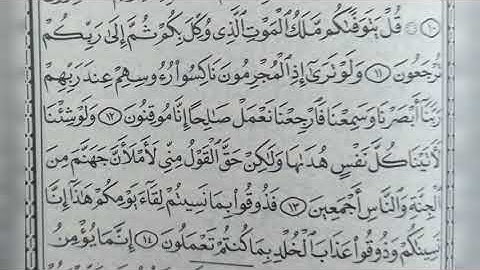 ۞ قُلْ يَتَوَفَّىٰكُم مَّلَكُ ٱلْمَوْتِ ٱلَّذِى وُكِّلَ بِكُمْ ثُمَّ إِلَىٰ رَبِّكُمْ
تُرْجَعُونَ ⑪ وَلَوْ تَرَىٰٓ إِذِ ٱلْمُجْرِمُونَ نَاكِسُوا۟ رُءُوسِهِمْ عِندَ رَبِّهِمْ
رَبَّنَآ أَبْصَرْنَا وَسَمِعْنَا فَٱرْجِعْنَا نَعْمَلْ صَٰلِحًا إِنَّا مُوقِنُونَ ⑫ وَلَوْ شِئْنَا
لَءَاتَيْنَا كُلَّ نَفْسٍ هُدَىٰهَا وَلَٰكِنْ حَقَّ ٱلْقَوْلُ مِنِّى لَأَمْلَأَنَّ جَهَنَّمَ مِنَ
ٱلْجِنَّةِ وَٱلنَّاسِ أَجْمَعِينَ ⑬ فَذُوقُوا۟ بِمَا نَسِيتُمْ لِقَآءَ يَوْمِكُمْ هَٰذَآ إِنَّا
نَسِينَٰكُمْ وَذُوقُوا۟ عَذَابَ ٱلْخُلْدِ بِمَا كُنتُمْ تَعْمَلُونَ ⑭ إِنَّمَا يُؤْمِنُ